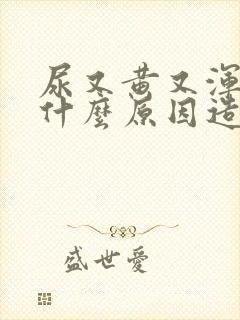 尿又黄又渾
什麼原因造
盛世愛